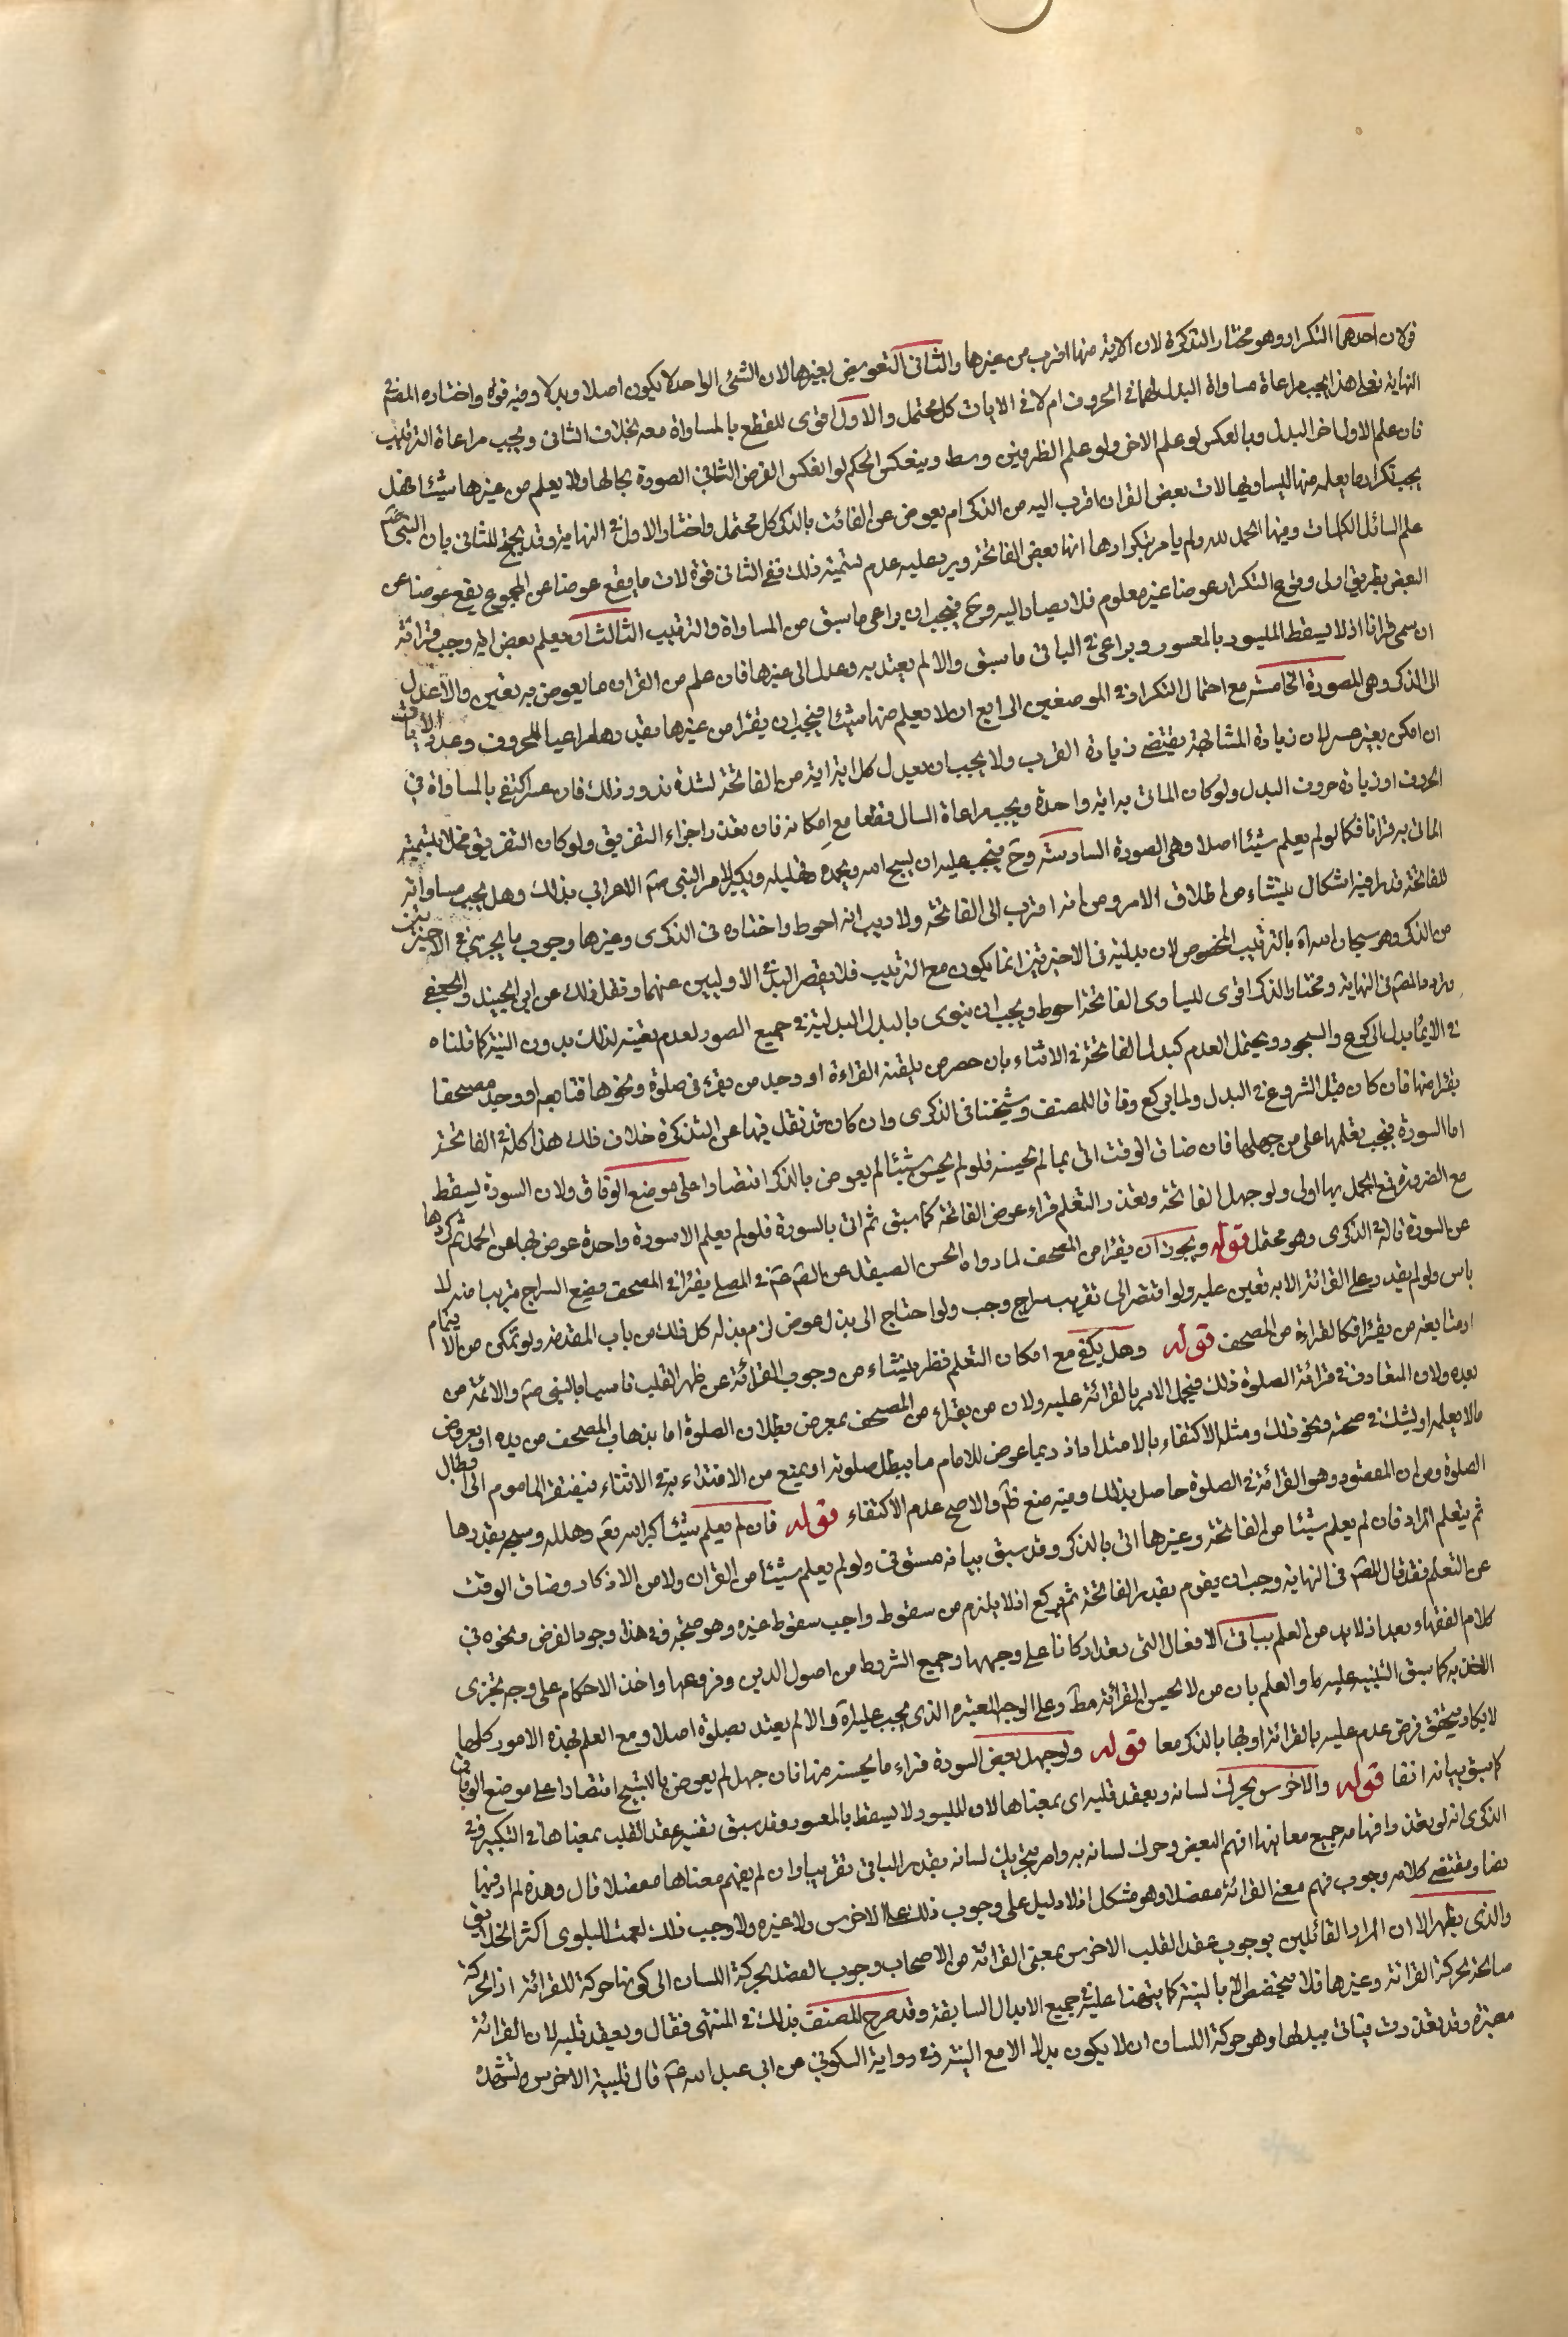 قولان احدهما التكرار وهو مختار التذكرة لان الاية منها اقرب من غيرها والثانى التعويض بغيرها لان الشئ الواحد لا يكون اصلا وبدلا وفيه قوة واختاره المص فى
النهاية فعلى هذا يجب مراعاة مساواة البدل لها فى الحروف ام لا فى الايات كل محتمل والاول اقوى للقطع بالمساواة معه بخلاف الثانى ويجب مراعاة الترتيب
فان علم الاول اخر البدل وبالعكس لو علم الاخر ولو علم الطرفين وسط وينعكس الحكم لو انعكس الفرض الثانى الصورة بحالها ولا يعلم من غيرها شيئا فهل
يجب تكرار ما يعلمه منها ليساويها لان بعض القران اقرب اليه من الذكر ام يعوض عن الفائت بالذكر كل محتمل واختار الاول فى النهاية وقد يحتج للثانى بان النبى صم
علم السائل الكلمات وفيها الحمد لله ولم يامر بتكرارها انها بعض الفاتحة ويرد عليه عدم تسميته ذلك ففى الثانى قوة لان ما يقع عوضا عن المجموع يقع عوضا عن
البعض بطريق اولى ووقوع التكرار عوضا غير معلوم فلا يصار اليه وح فيجب ان يراعى ما سبق من المساواة والترتيب الثالث ان يعلم بعض اية وجب قرائة
ان سمى قرانا اذ لا يسقط الميسور بالمعسور ويراعى فى الباقى ما سبق والا لم يعتد به وعدل الى غيرها فان علم من القران ما يعوض به تعين والا عدل
الى الذكر وهى الصورة الخامسة مع احتمال التكرار فى الموضعين الرابع ان لا يعلم منها شيئا فيجب ان يقرا من غيرها بقدرها مراعيا للحروف وعدد الايات
ان امكن بغير عسر لان زيادة المشابهة يقتضى زيادة القرب ولا يجب ان يعدل كل اية اية من الفاتحة لشدة ندور ذلك فان عسر اكتفى بالمساواة فى
الحروف او زيادة حروف البدل ولو كان الماتى به اية واحدة ويجب مراعاة التوالى فقطعا مع امكانه فان تعذر اجزاء التفريق ولو كان التفريق مخلا بتسمية
الماتى به قرانا فكما لو لم يعلم شيئا اصلا وهى الصورة السادسة وح فيجب عليه ان يسبح الله ويحمده ويهلله ويكبره لامر النبى صم الاعرابى بذلك وهل يجب مساواته
للفاتحة قدرا فيه اشكال ينشاء من اطلاق الامر ومن انه اقرب الى الفاتحة ولا ريب انه احوط واختاره فى الذكرى وغيرها وجوب ما يجزى فى الاخيرتين
من الذكر وهو سبحان الله اه بالترتيب المخصوص لان بدليته فى الاخيرتين انما يكون مع الترتيب فلا يقصر البدل فى الاوليين عنهما ونقل ذلك عن ابن الجنيد والجعفى
ورده المص فى النهاية ومختار الذكرى اقوى للمساوى الفاتحة احوط ويجب ان ينوى بالبدل البدلية فى جميع الصور لعدم تعينه لذلك بدون النية كما قلناه
فى الايماء بدل الركوع والسجود ويحتمل العدم كبدل الفاتحة فى الاثناء بان حصر من يلقنه القراءة او وجد من يقرء فى صلوة ونحوها فتابعه او وجد مصحفا
يقرا منها فان كان قبل الشروع فى البدل ولما يركع وفاقا للمصنف وشيخنا فى الذكرى وان كان قد نقل فيها عن التذكرة خلاف ذلك هذا كله فى الفاتحة
اما السورة فيجب تعلمها على من جهلها فان ضاق الوقت اتى بما لم يحسنه فلو لم يحسن شيئا لم يعوض بالذكر اقتصارا على موضع الوفاق ولان السورة يسقط
مع الضرورة فمع الجهل بها اولى ولو جهل الفاتحة وتعذر التعلم قراء عوض الفاتحة كما سبق ثم اتى بالسورة فلو لم يعلم الا سورة واحدة عوض بها عن الحمد ثم كررها
عن السورة قاله فى الذكرى وهو محتمل قوله ويجوز ان يقرا من المصحف لما رواه الحسن الصيقل عن الص عم فى المصلى يقرا فى المصحف ويضع السراج قريبا منه لا
باس ولو لم يقدر على القرائة الا به تعين عليه ولو افتقر الى تقريب سراج وجب ولو احتاج الى بذل عوض لزم بذله كل ذلك من باب المقدمة ولو تمكن من الايتمام
او متابعة من يقرا فكالقراءة من المصحف قوله وهل يكفى مع امكان التعلم نظر ينشاء من وجوب القرائة عن ظهر القلب تاسيا بالنبى صم والائمة من
بعده ولان المتعارف فى قرائة الصلوة ذلك فيحمل الامر بالقرائة عليه ولان من يقراء من المصحف بمعرض بطلان الصلوة اما بذهاب المصحف من يده او بعروض
ما لا يعلمه او يشك فى صحته ونحو ذلك ومثله الاكتفاء بالامتداد اذ ربما عرض للامام ما يبطل صلوته او يمنع من الاقتداء به فى الاثناء فيفتقر الماموم الى ابطال
الصلوة ومن ان المقصود وهو القرائة فى الصلوة حاصل بذلك وفيه منع ظم والاصح عدم الاكتفاء قوله فان لم يعلم شيئا كبر الله تعم وهلله وسبحه بقدرها
ثم يتعلم المراد فان لم يعلم شيئا من الفاتحة وغيرها اتى بالذكر وقد سبق بيانه مستوفى ولو لم يعلم شيئا من القران ولا من الاذكار وضاق الوقت
عن التعلم فقد قال المص فى النهاية وجب ان يقوم بقدر الفاتحة ثم يركع اذ لا يلزم من سقوط واجب سقوط غيره وهو متجه وفى هذا وجود الفرض ونحوه فى
كلام الفقهاء بعد اذ لا بد من العلم بباقى الافعال التى تعد اركانا على وجهها وجميع الشروط من اصول الدين وفروعها واخذ الاحكام على وجه يجزى
الاخذ به كما سبق التنبيه عليه والعلم بان من لا يحسن القرائة مط وعلى الوجه المعتبر الذى يجب عليه اه والا لم يعتد بصلوة اصلا ومع العلم بهذه الامور كلها
لا يكاد يتحقق فرض عدم عليه بالقرائة او بها بالذكر معا قوله ولو جهل بعض السورة قراء ما يحسنه منها فان جهل لم يعوض بالتسبيح اقتصارا على موضع الوفاق
كما سبق بيانه انفا قوله والاخرس يحرك لسانه ويعقد قلبه اى بمعناها لان الميسور لا يسقط بالمعسور وقد سبق تفسير عقد القلب بمعناها فى التكبير وفى
الذكرى انه لو تعذر افهامه جميع معانيها افهم البعض وحرك لسانه به وامر بتحريك لسانه بقدر الباقى تقريبا وان لم يفهم معناها مفصلا قال وهذه لم ار فيها
نصا ومقتضى كلامه وجوب فهم معنى القرائة مفصلا وهو مشكل اذ لا دليل على وجوب ذلك على الاخرس ولا غيره ولو وجب ذلك لعمت البلوى اكثر الخلايق
والذى يظهر الا ان المراد القائلين بوجوب عقد القلب الاخرس بمعنى القرائة من الاصحاب وجوب القصد بحركة اللسان الى كونها حركة للقرائة اذ الحركة
صالحة لحركة القرائة وغيرها فلا يتخصص الا بالنية كما نبهنا عليه فى جميع الابدال السابقة وقد صرح المصنف بذلك فى المنتهى فقال ويعقد قلبه لان القرائة
معتبرة وقد تعذرت فياتى ببدلها وهو حركة اللسان ان لا يكون بدلا الا مع النية وفى رواية السكونى عن ابى عبد الله عم قال تلبية الاخرس وتشهده